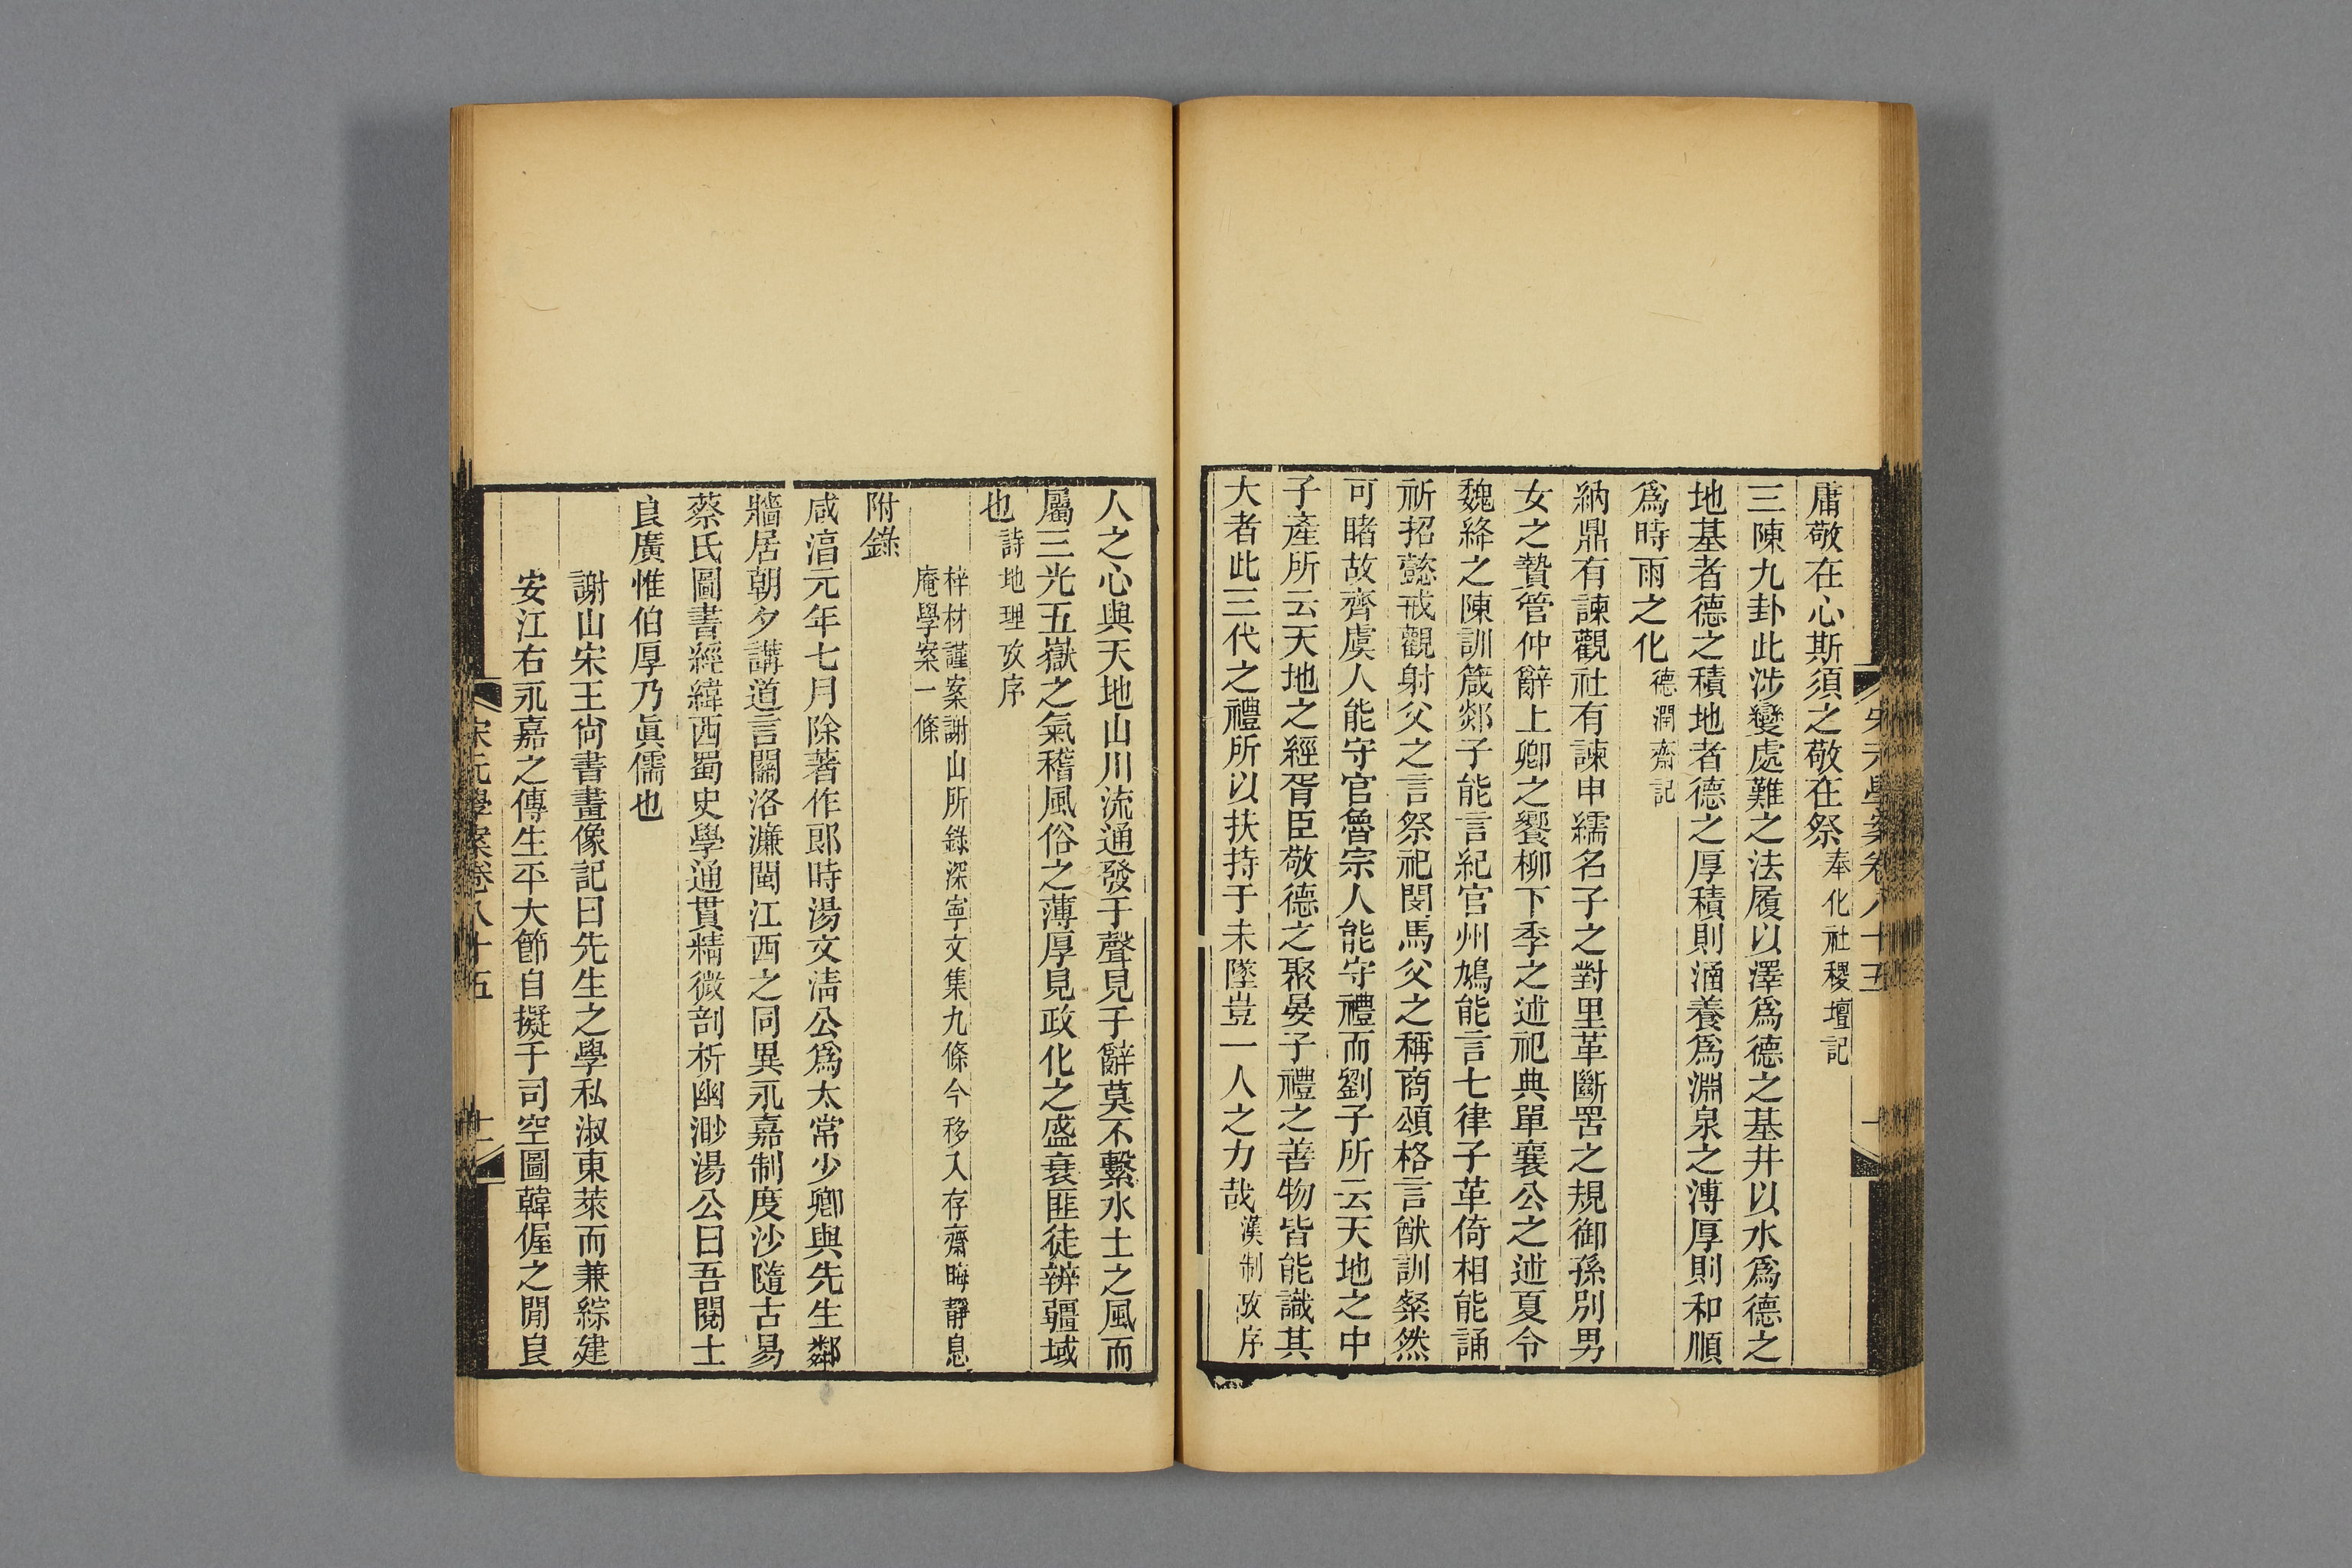 宋元學案卷八十五
庸敬在心斯須之敬在祭奉化社稷壇記
三陳九卦此涉變處難之法履以澤爲德之基井以水爲德之
地基者德之積地者德之厚積則涵養爲淵泉之溥厚則和順
爲時雨之化德潤齋記
納鼎有諫觀社有諫申繻名子之對里革斷罟之規御孫別男
女之贄管仲辭上卿之饗柳下季之述祀典單襄公之述夏令
魏絳之陳訓箴郯子能言紀官州鳩能言七律子革倚相能誦
祈招懿戒觀射父之言祭祀閔馬父之稱商頌格言猷訓粲然
可睹故齊虞人能守官魯宗人能守禮而劉子所云天地之中
子產所云天地之經胥臣敬德之聚晏子禮之善物皆能識其
大者此三代之禮所以扶持于未墜豈一人之力哉漢制攷序
人之心與天地山川流通發于聲見于辭莫不繫水土之風而
屬三光五嶽之氣稽風俗之薄厚見政化之盛衰匪徒辨疆域
也詩地理攷序
梓材謹案謝山所錄深寧文集九條今移入存齋晦靜息
庵學案一條
附錄
咸淳元年七月除著作郎時湯文清公爲太常少卿與先生鄰
牆居朝夕講道言關洛濂閩江西之同異永嘉制度沙隨古易
蔡氏圖書經緯西蜀史學通貫精微剖析幽渺湯公曰吾閱士
良廣惟伯厚乃眞儒也
謝山宋王尙書畫像記曰先生之學私淑東萊而兼綜建
安江右永嘉之傳生平大節自擬于司空圖韓偓之閒良
宋元學案卷八十五
十一